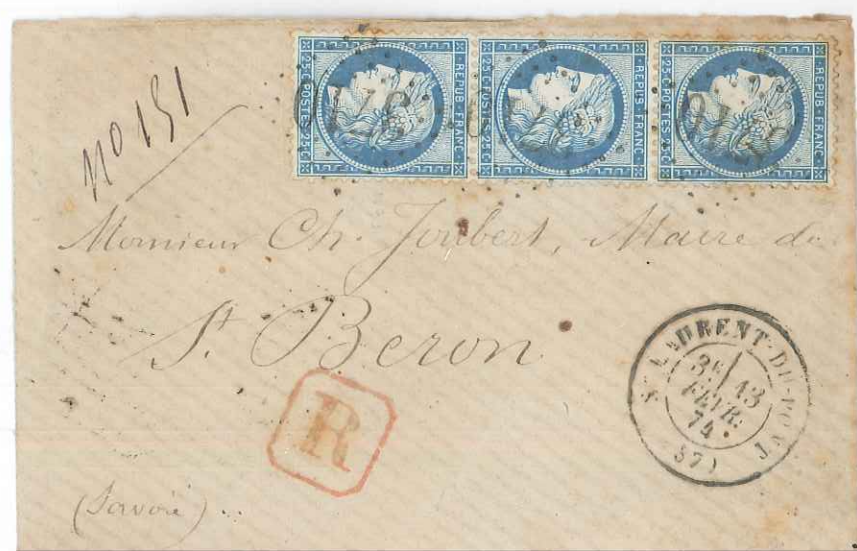 REPUB·FRANC·
25 C POSTES 25 C
REPUB·FRANC·
25 C POSTES 25 C
REPUB·FRANC·
25 C POSTES 25 C
3710
3710
3710
No 151
Monsieur Ch. Joubert, Maire de
St Beron
(Savoie)
R
ST LAURENT-DU-PONT
3E 13
FEVR.
74
(37)